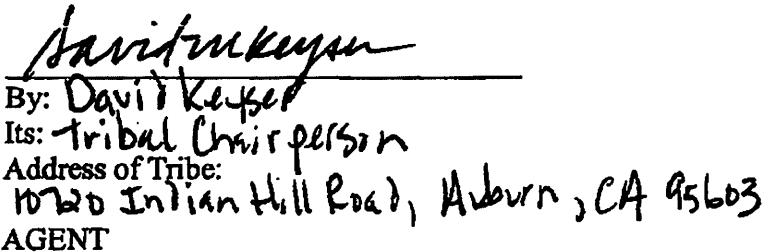 David M Keyser
By: David Keyser
Its: Tribal Chairperson
Address of Tribe:
10720 Indian Hill Road, Auburn, CA 95603
AGENT